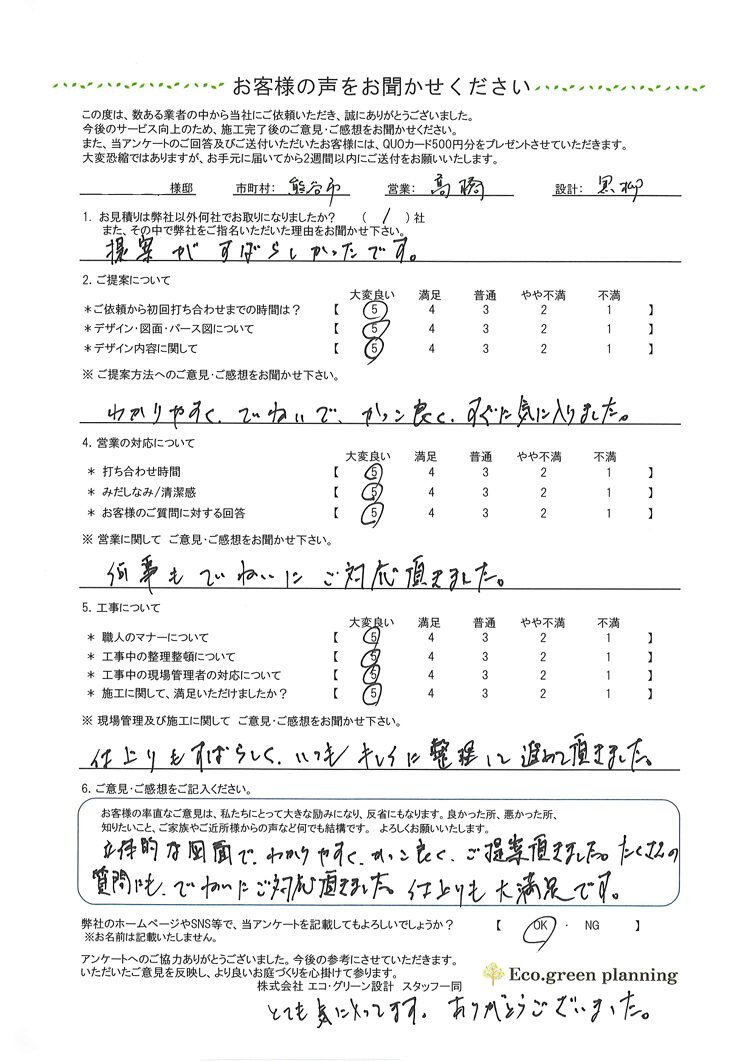 お客様の声をお聞かせください
この度は、数ある業者の中から当社にご依頼いただき、誠にありがとうございました。
今後のサービス向上のため、施工完了後のご意見・ご感想をお聞かせください。
また、当アンケートのご回答及びご送付いただいたお客様には、QUOカード500円分をプレゼントさせていただきます。
大変恐縮ではありますが、お手元に届いてから2週間以内にご送付をお願いいたします。
様邸 市町村: 熊谷市 営業: 高橋 設計: 黒柳
1. お見積りは弊社以外何社でお取りになりましたか? ( 1 )社
また、その中で弊社をご指名いただいた理由をお聞かせ下さい。
提案がすばらしかったです。
2. ご提案について
大変良い 満足 普通 やや不満 不満
*ご依頼から初回打ち合わせまでの時間は? 【 5 4 3 2 1 】
*デザイン・図面・パース図について 【 5 4 3 2 1 】
*デザイン内容に関して 【 5 4 3 2 1 】
※ ご提案方法へのご意見・ご感想をお聞かせ下さい。
わかりやすく、ていねいで、かっこ良く、すぐに気に入りました。
4. 営業の対応について
大変良い 満足 普通 やや不満 不満
* 打ち合わせ時間 【 5 4 3 2 1 】
* みだしなみ/清潔感 【 5 4 3 2 1 】
* お客様のご質問に対する回答 【 5 4 3 2 1 】
※ 営業に関して ご意見・ご感想をお聞かせ下さい。
何事もていねいにご対応頂きました。
5. 工事について
大変良い 満足 普通 やや不満 不満
* 職人のマナーについて 【 5 4 3 2 1 】
* 工事中の整理整頓について 【 5 4 3 2 1 】
* 工事中の現場管理者の対応について 【 5 4 3 2 1 】
* 施工に関して、満足いただけましたか? 【 5 4 3 2 1 】
※ 現場管理及び施工に関して ご意見・ご感想をお聞かせ下さい。
仕上りもすばらしく、いつもキレイに整理して進めて頂きました。
6. ご意見・ご感想をご記入ください。
お客様の率直なご意見は、私たちにとって大きな励みになり、反省にもなります。良かった所、悪かった所、
知りたいこと、ご家族やご近所様からの声など何でも結構です。 よろしくお願いいたします。
立体的な図面で、わかりやすく、かっこ良く、ご提案頂きました。たくさんの
質問にも、ていねいにご対応頂きました。仕上りも大満足です。
弊社のホームページやSNS等で、当アンケートを記載してもよろしいでしょうか? 【 OK ・ NG 】
※お名前は記載いたしません。
アンケートへのご協力ありがとうございました。今後の参考にさせていただきます。
いただいたご意見を反映し、より良いお庭づくりを心掛けて参ります。
株式会社 エコ・グリーン設計 スタッフ一同
Eco.green planning
とても気に入ってます。ありがとうございました。